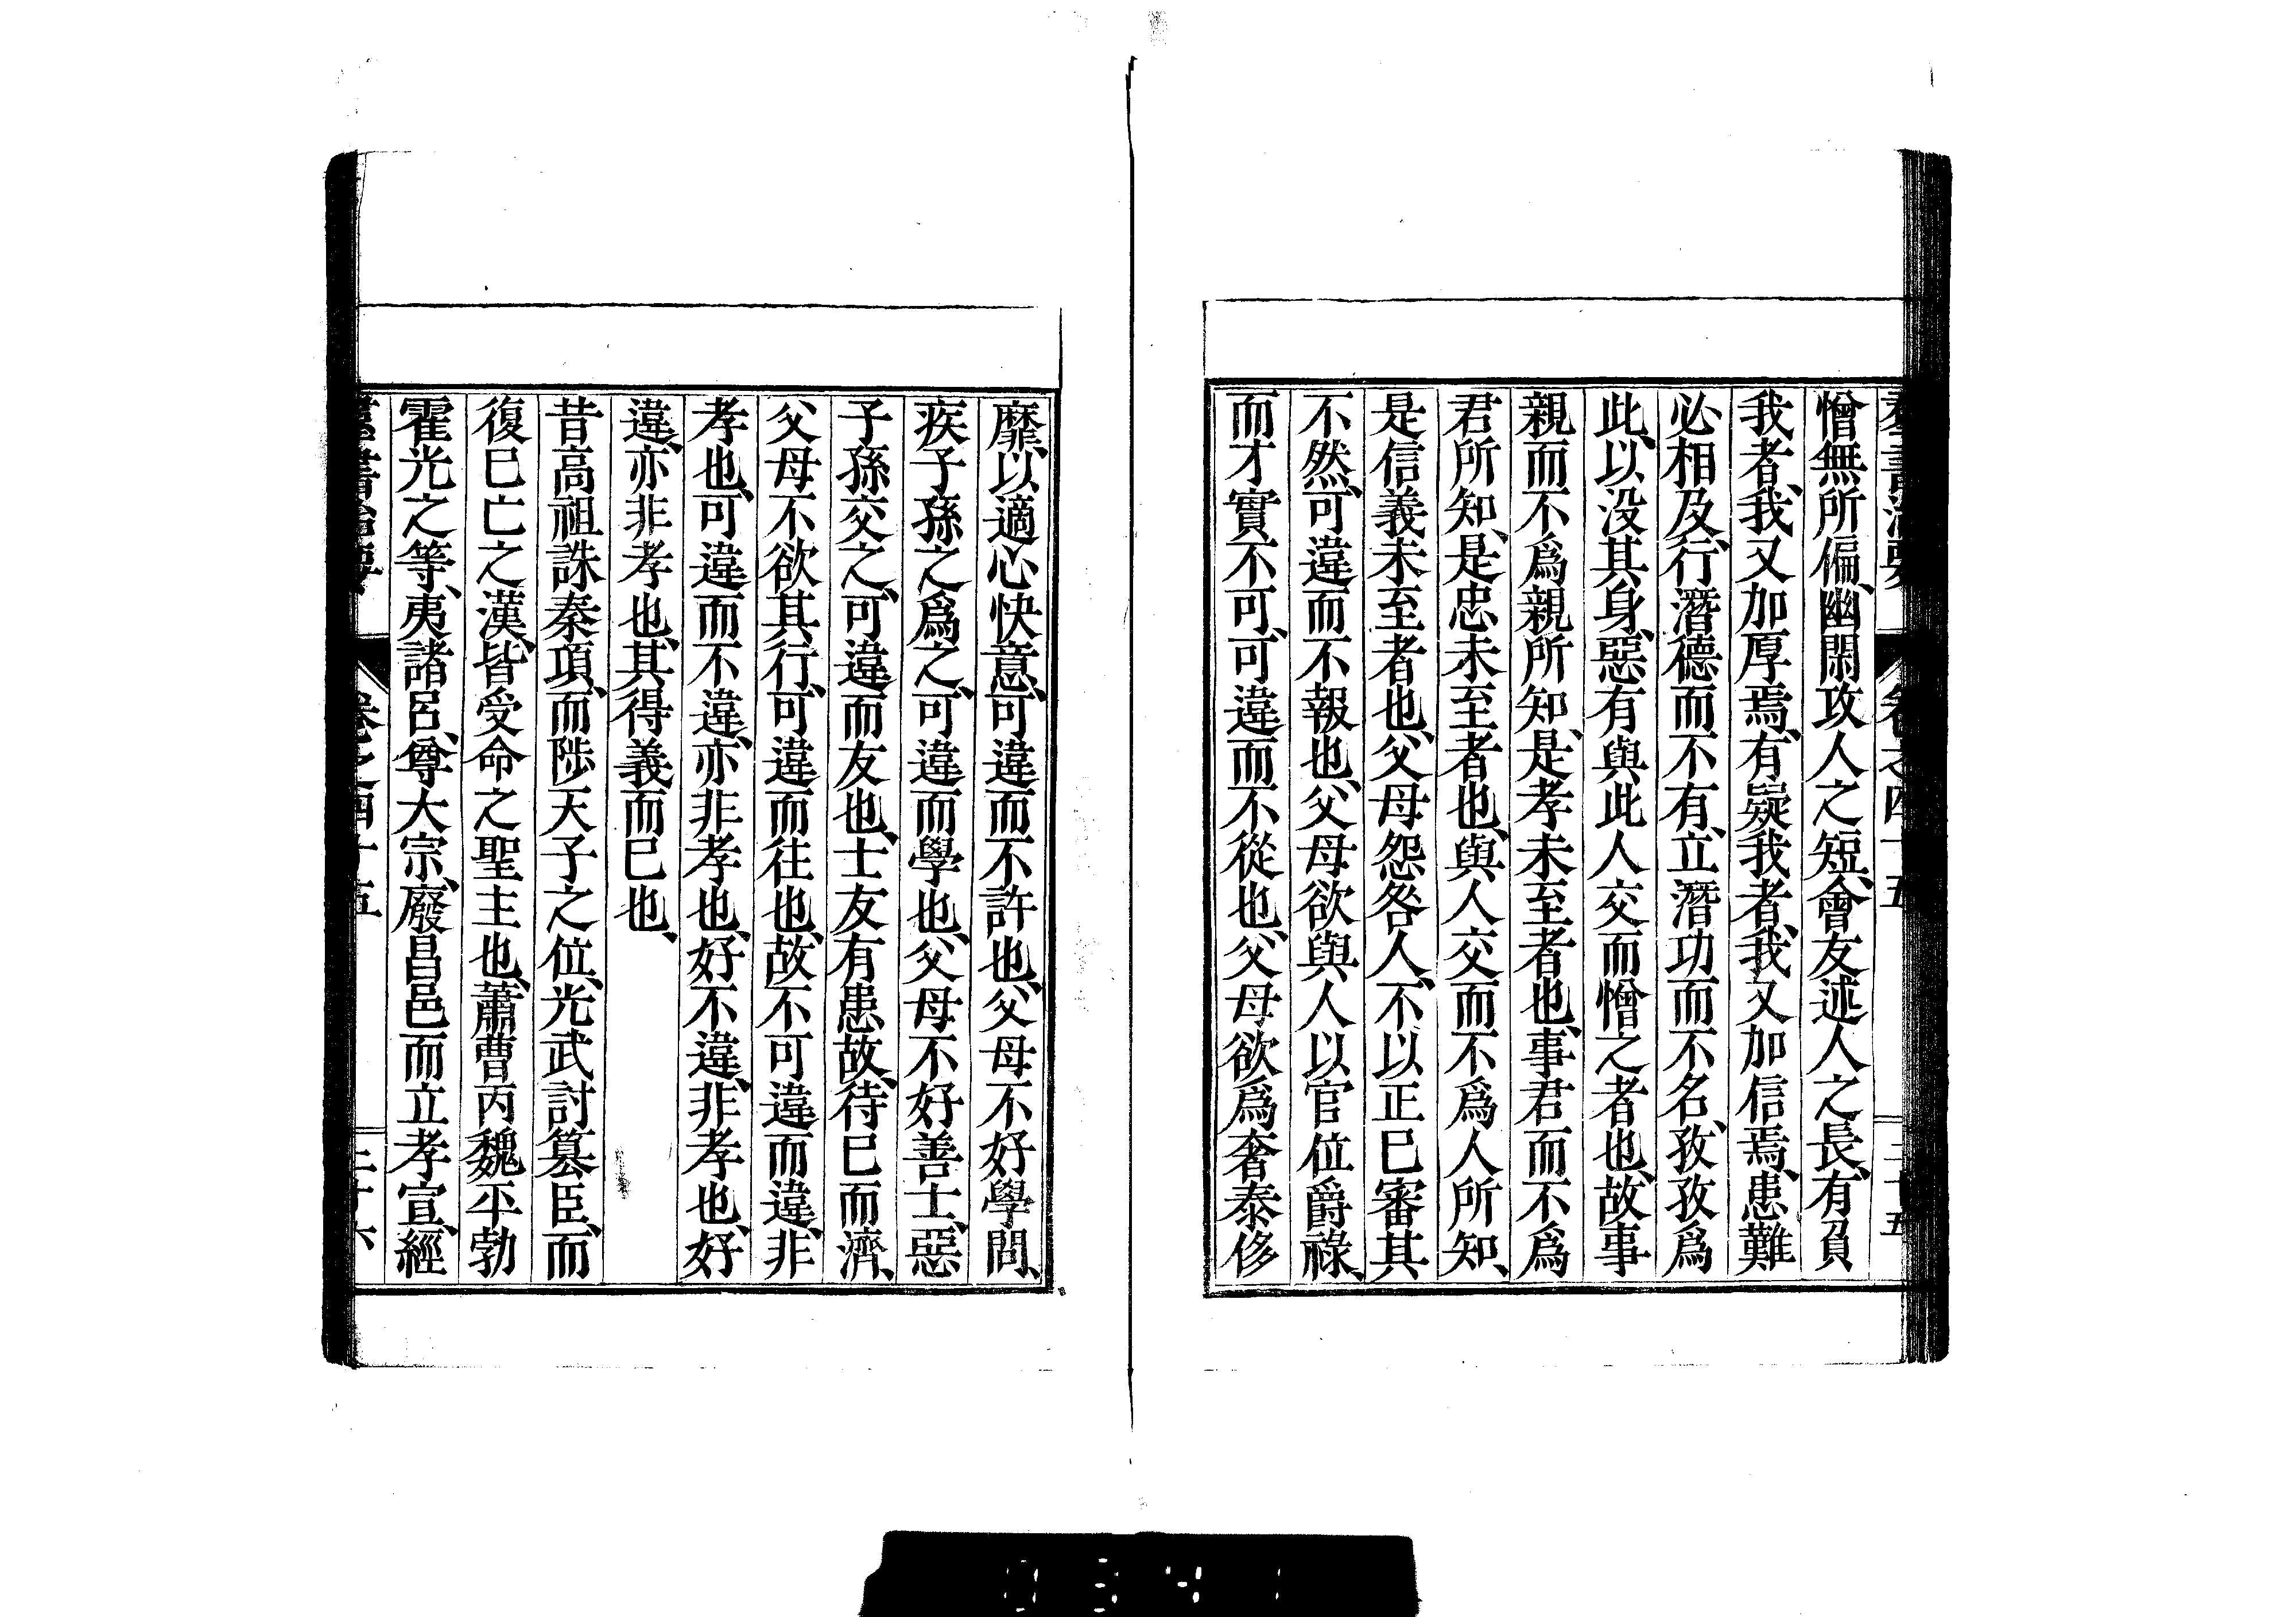 群書治要 卷之四十五 三十五
憎無所偏、幽閑攻人之短、會友述人之長、有負
我者、我又加厚焉、有疑我者、我又加信焉、患難
必相及、行潛德而不有、立潛功而不名、孜孜爲
此、以沒其身、惡有與此人交而憎之者也、故事
親而不爲親所知、是孝未至者也、事君而不爲
君所知、是忠未至者也、與人交而不爲人所知、
是信義未至者也、父母怨咎人、不以正已審其
不然、可違而不報也、父母欲與人以官位爵祿、
而才實不可、可違而不從也、父母欲爲奢泰侈
靡、以適心快意、可違而不許也、父母不好學問、
疾子孫之爲之、可違而學也、父母不好善士、惡
子孫交之、可違而友也、士友有患故、待已而濟、
父母不欲其行、可違而往也、故不可違而違、非
孝也、可違而不違、亦非孝也、好不違、非孝也、好
違、亦非孝也、其得義而已也、
昔高祖誅秦項、而陟天子之位、光武討篡臣、而
復已亡之漢、皆受命之聖主也、蕭曹丙魏平勃
霍光之等、夷諸呂、尊大宗、廢昌邑而立孝宣、經
群書治要 卷之四十五 三十六
0341